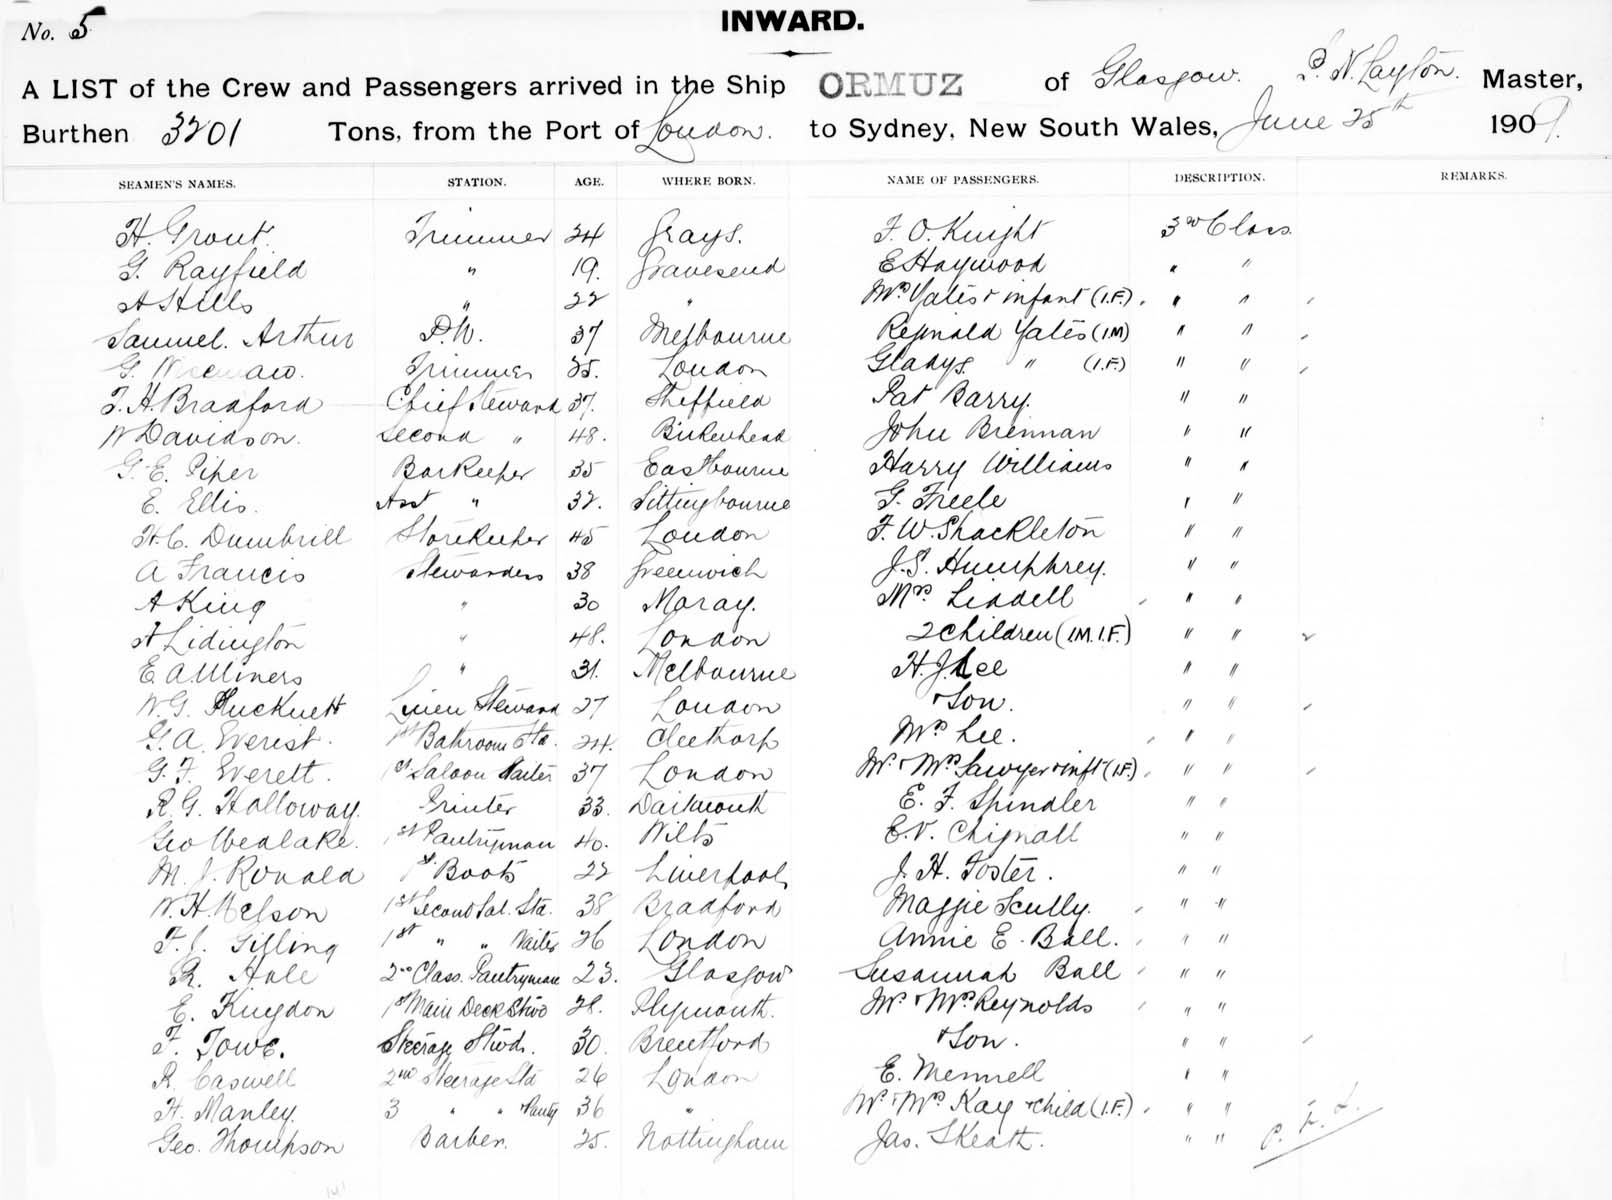 No. 5
INWARD.
A LIST of the Crew and Passengers arrived in the Ship ORMUZ of Glasgow. P. N. Layton. Master,
Burthen 3201 Tons, from the Port of London. to Sydney, New South Wales, June 25th 1909.
SEAMEN'S NAMES. STATION. AGE. WHERE BORN. NAME OF PASSENGERS. DESCRIPTION. REMARKS.
H. Grout. Trimmer 24 Grays. F. O. Knight 3rd Class.
G. Rayfield " 19. Gravesend E Haywood " "
A Hills " 22 " Mrs Yates & infant (I.F.) " "
Samuel. Arthur P.W. 37 Melbourne Reginald Yates (1M) " "
G. Trimmer 25. London Gladys " (I.F.) " "
F. H. Bradford Chief Steward 37. Sheffield Pat Barry. " "
W Davidson. Second " 48. Birkenhead John Brennan " "
G. E. Piper Barkeeper 35 Eastbourne Harry Williams " "
E. Ellis. Asst " 32. Sittingbourne G. Freele " "
H. C. Dumbrill Storekeeper 45 London F. W. Shackleton " "
A Francis Stewardess 38 Greenwich J. S. Humphrey. " "
A King " 30 Moray. Mrs Liddell " "
A Lidington " 48. London 2 children (1.M. 1.F.) " "
E A Miners " 31. Melbourne H. J. Lee " "
W. G. Hucknett Linen Steward 27 London & Son. " "
G. A. Everest. 1st Bathroom Std. 24. Cleethorp Mrs Lee. " "
G. F. Everett. 1st Saloon Waiter 37 London Mr. & Mrs Sawyer & inft (I.F.) " "
R. G. Holloway. Printer 33. Dartmouth E. F. Spindler " "
Geo Wedlake. 1st Pantryman 40. Wilts E. V. Chignall " "
M. J. Ronald 1st Boots 22 Liverpool J. H. Foster. " "
W. H. Nelson 1st Second Sal. Std. 38 Bradford Maggie Scully. " "
F. J. Gilling 1st " " Waiter 26 London Annie E. Ball. " "
R. Hole 2nd Class. Pantryman 23. Glasgow Susannah Ball " "
E. Kingdon 1st Main Deck Stwd 28. Plymouth. Mr. & Mrs Reynolds " "
F. Towe. Steerage Stwds. 30. Brentford & Son. " "
R. Caswell 2nd Steerage Std 26 London E. Mennell " "
H. Manley. 3 " " Panty 36 " Mr. & Mrs Kay & child (I.F.) " "
Geo. Thompson Barber. 25. Nottingham Jas. Skeath. " "